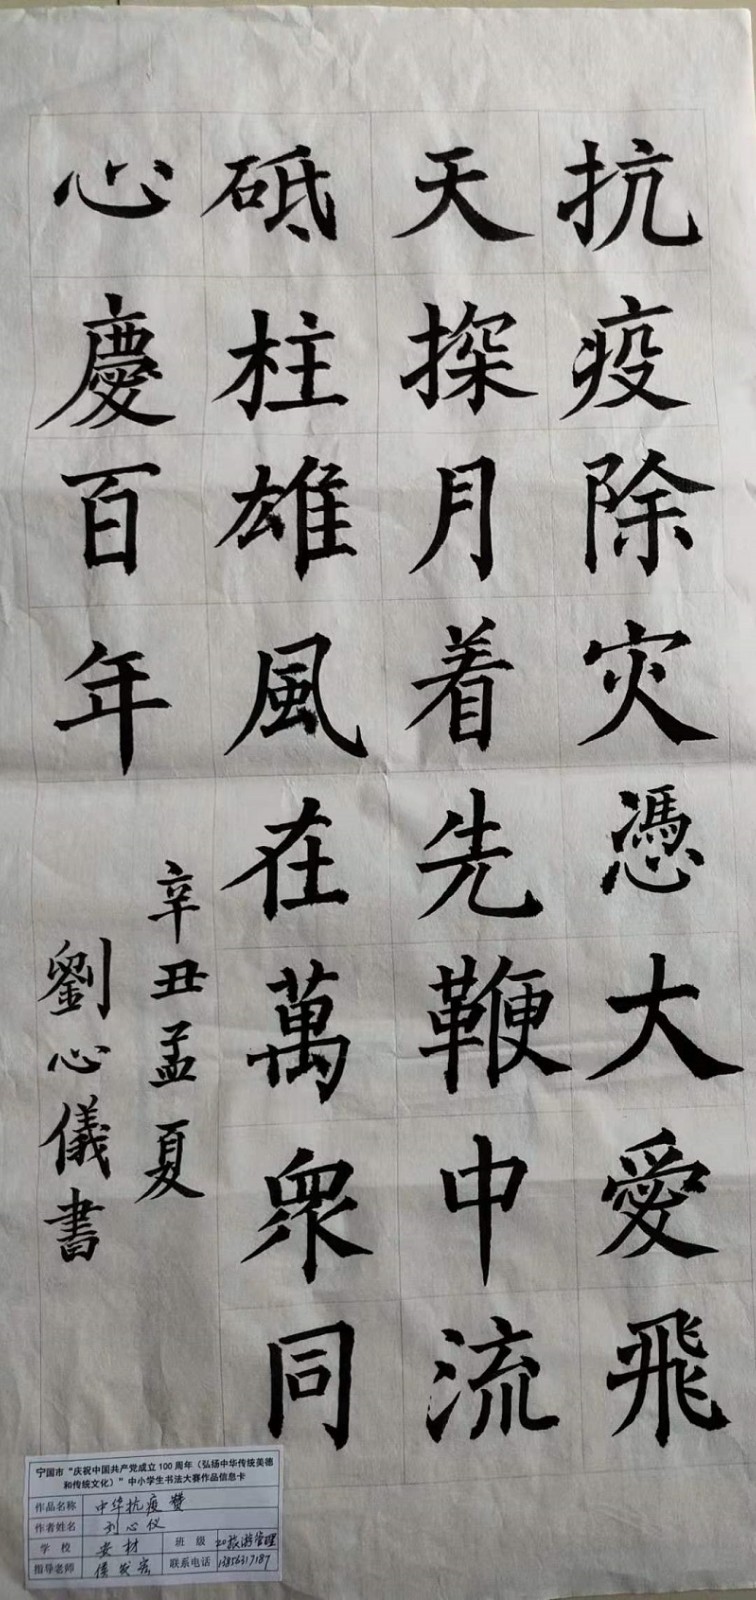 抗疫除灾憑大愛飛
天探月着先鞭中流
砥柱雄風在萬衆同
心慶百年
辛丑孟夏
劉心儀書
宁国市“庆祝中国共产党成立100周年（弘扬中华传统美德
和传统文化）”中小学生书法大赛作品信息卡
作品名称 中华抗疫赞
作者姓名 刘心仪
学校 安材 班级 20旅游管理
指导老师 侯发宏 联系电话 13856317187